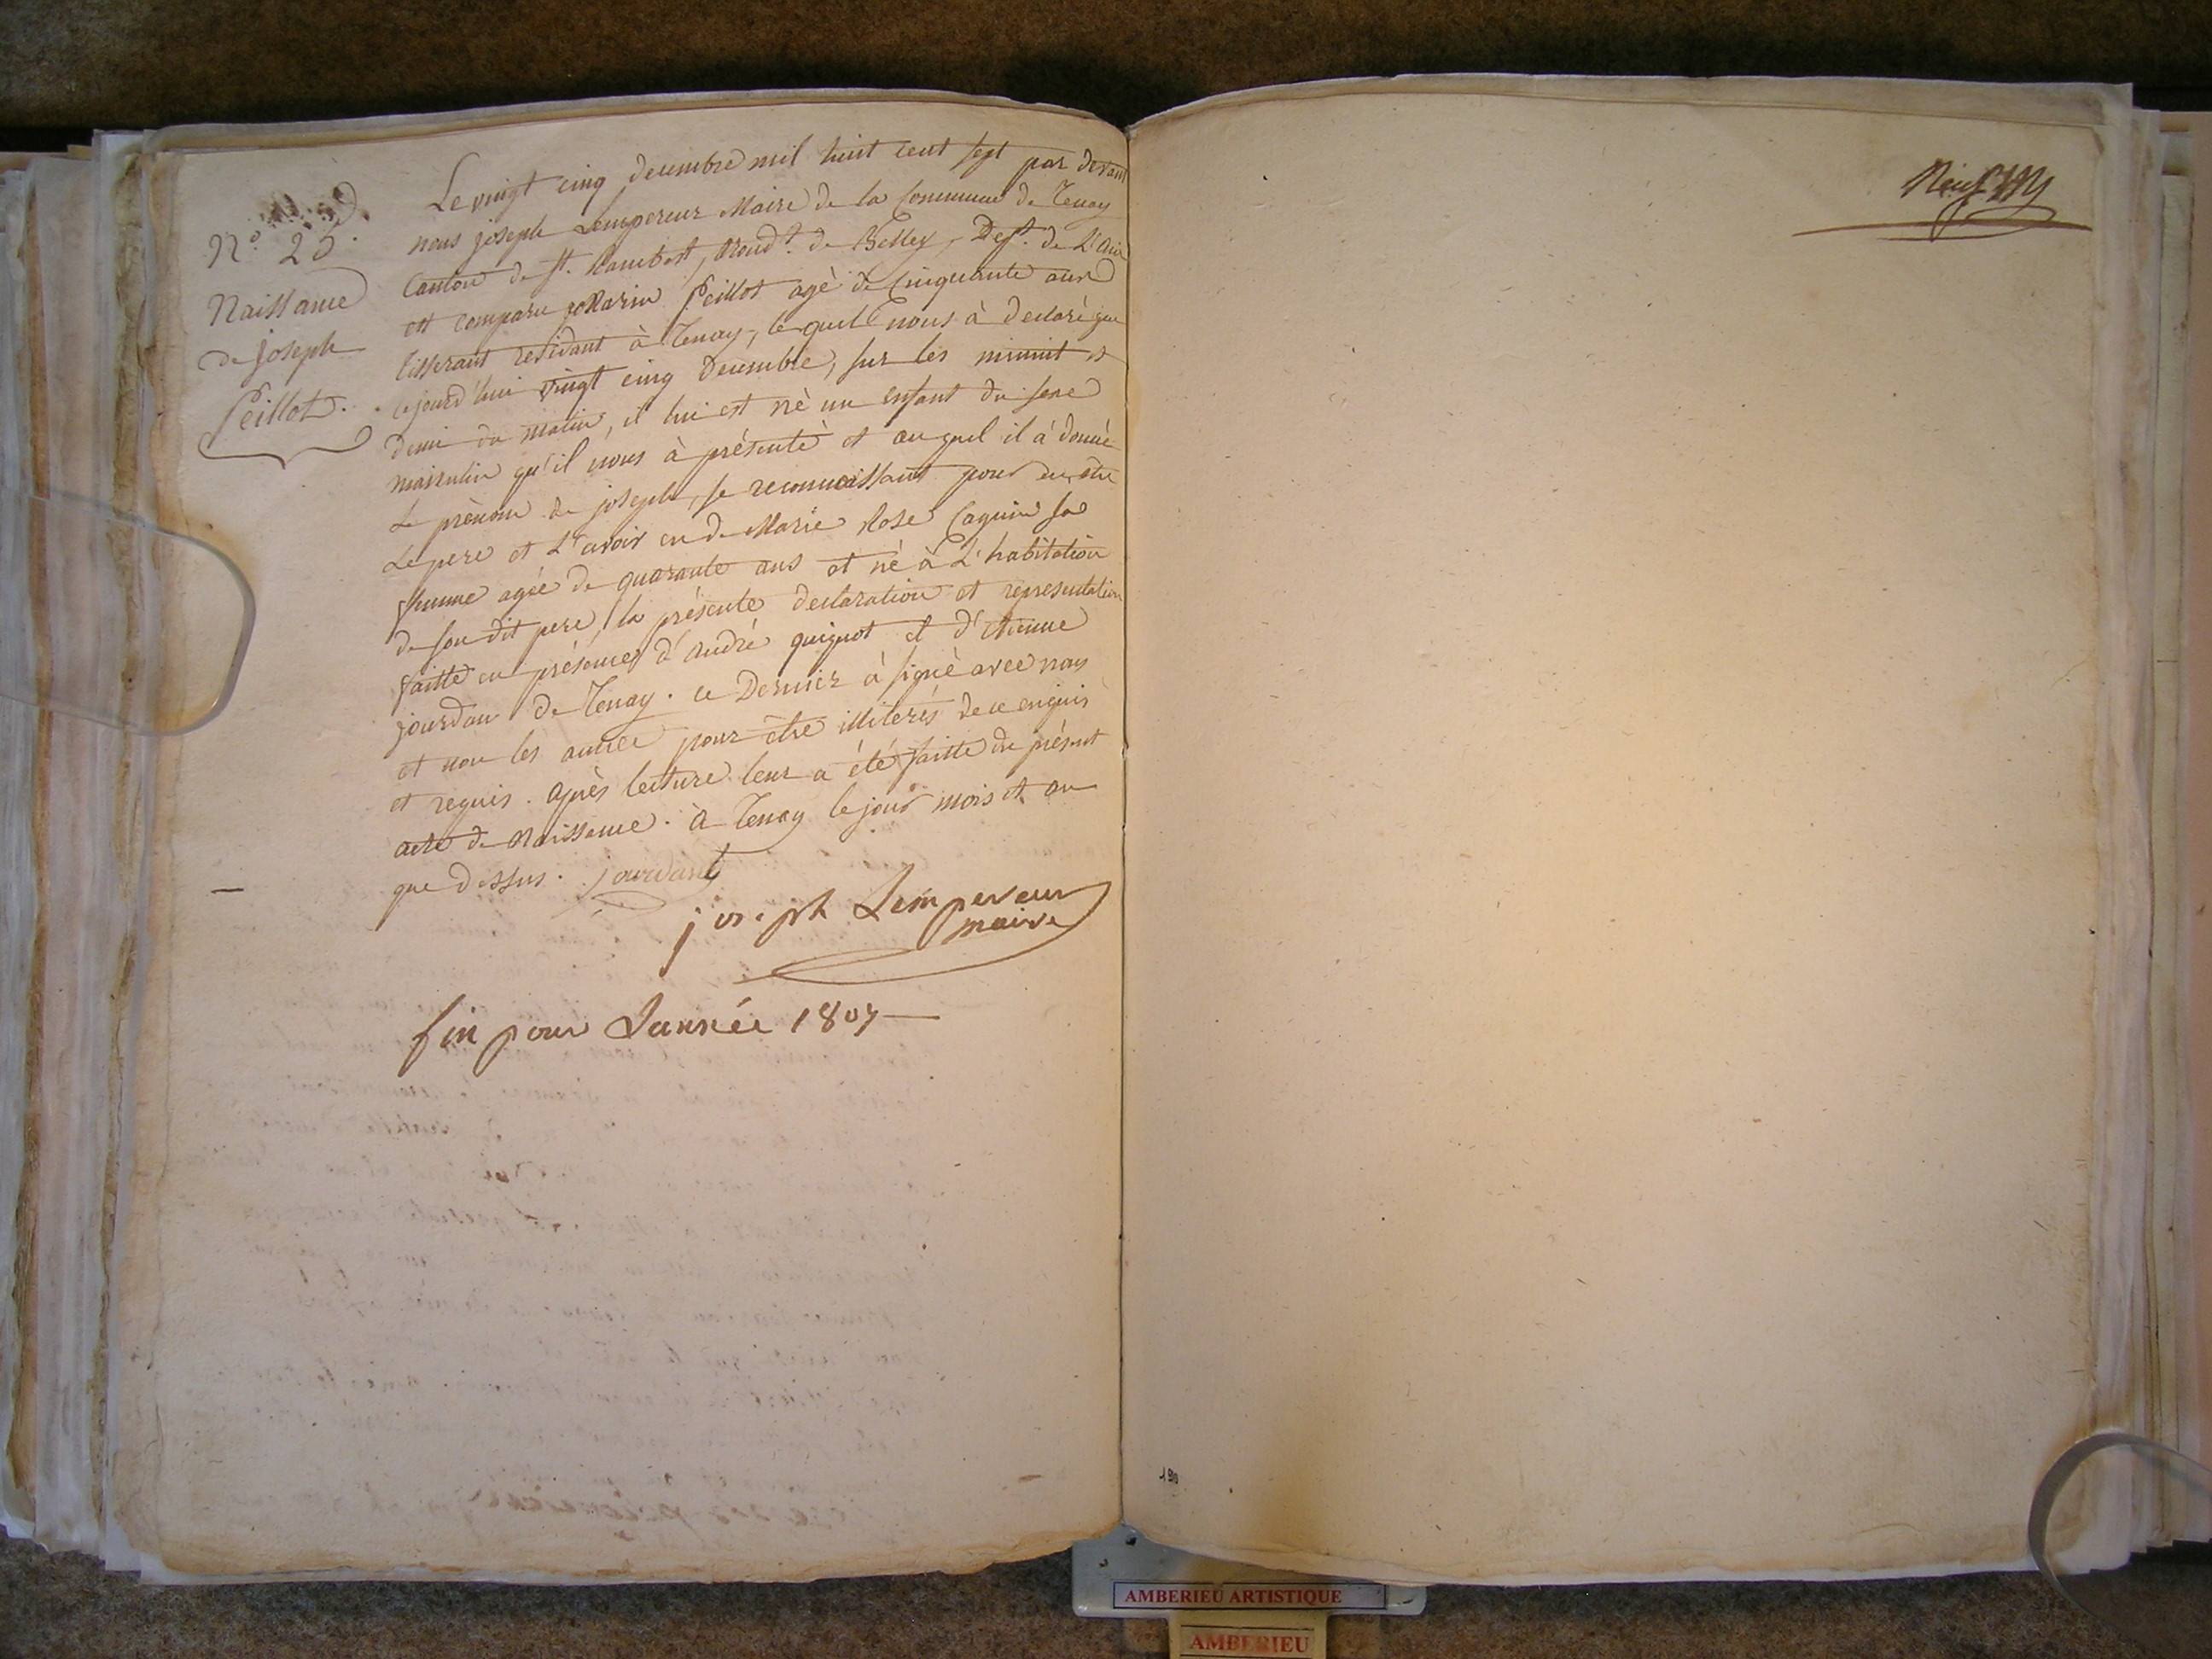 N.o 25.
Naissance
de joseph
Peillot.
Le vingt cinq decembre mil huit cent sept par devant
nous joseph Lempereur Maire de la Commune de Tenay
Canton de St. Rambert, arond.t de Belley, Dep.t de L'Ain
est comparu Marin Peillot agé de Cinquante ans
tisserant residant à Tenay, lequel nous à declaré que
cejourd'hui vingt cinq decembre, sur les minuit et
demi du matin, il lui est né un enfant du sexe
masculin qu'il nous à présenté et auquel il à donné
le prénom de joseph, se reconnaissant pour en etre
Le pere et L'avoir eu de Marie Rose Caguin sa
femme agée de quarante ans et né à L'habitation
de son dit pere, la présente declaration et representation
faitte en présence d'andré quignot et d'etienne
jourdan de Tenay. ce Dernier à signé avec nous
et non les autres pour etre illiterés de ce enquis
et requis. après lecture leur a été faitte du présent
acte de Naissance. à Tenay le jour mois et an
que dessus. jourdant
joseph Lempereur
maire
fin pour Lannée 1807
Neuf
190
AMBERIEU ARTISTIQUE
AMBERIEU